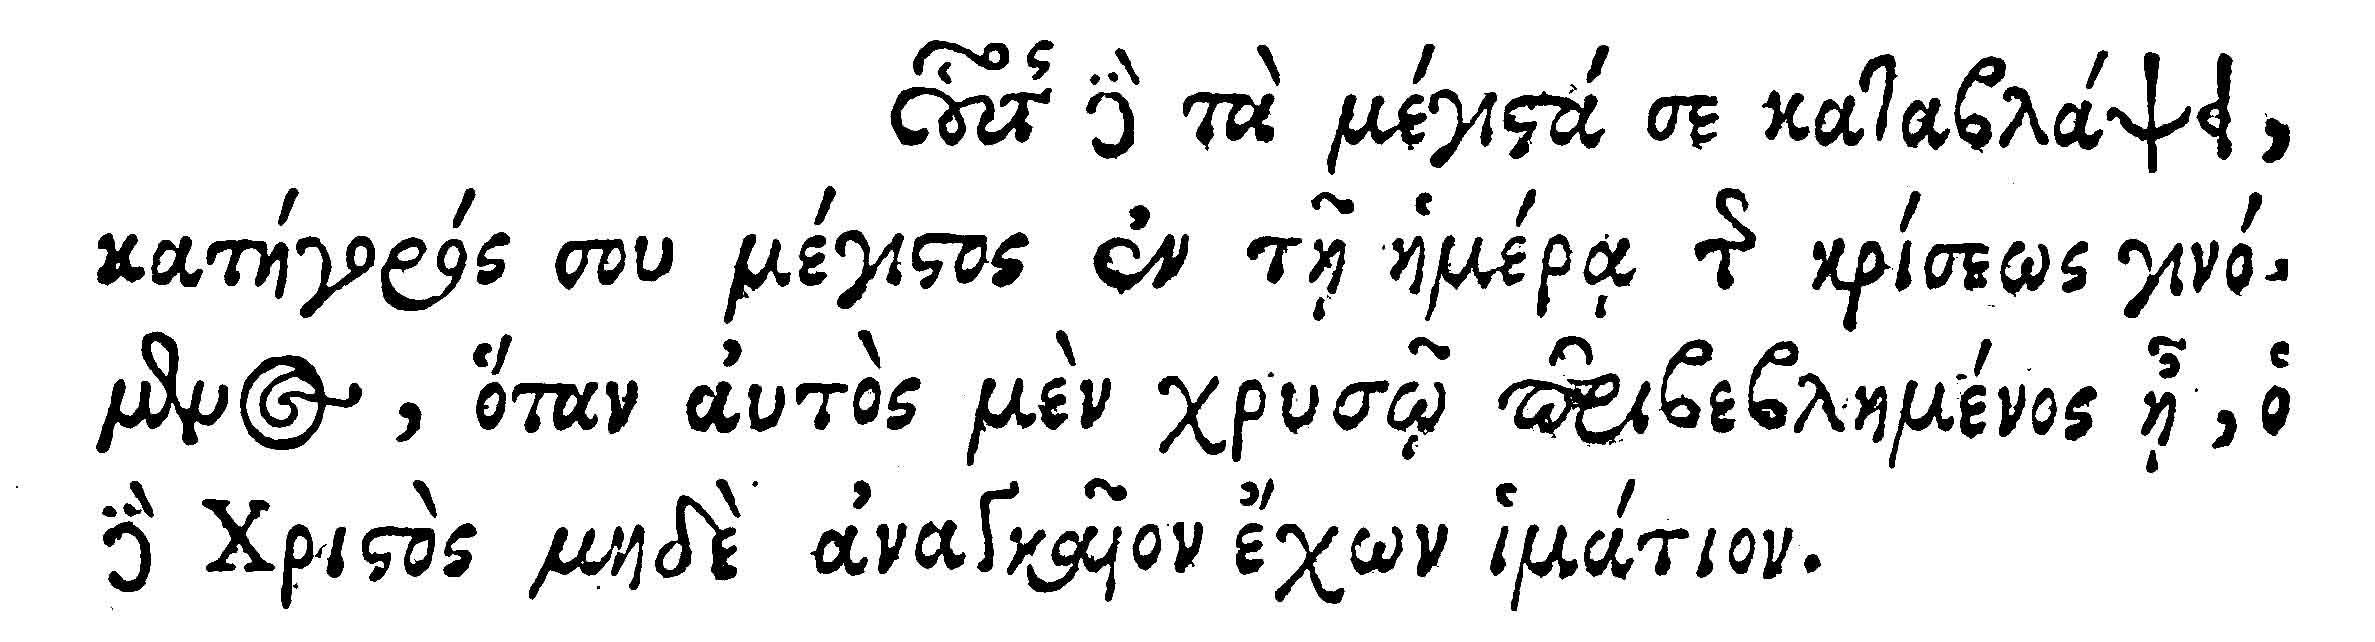 οὗτος δὲ τὰ μέγιστά σε καταβλάψει,
κατήγορός σου μέγιστος ἐν τῇ ἡμέρᾳ τῆς κρίσεως γινό-
μενος, ὅταν αὐτὸς μὲν χρυσῷ περιβεβλημένος ᾖ, ὁ
δὲ Χριστὸς μηδὲ ἀναγκαῖον ἔχων ἱμάτιον.